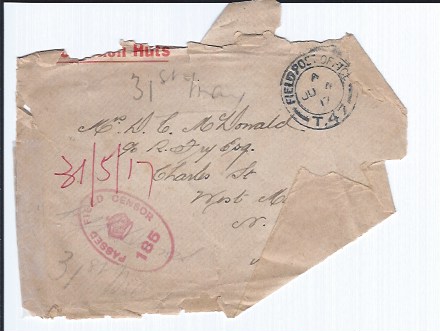 Huts
31st May
FIELD POST OFFICE
A
JU
17
T.47
Mrs D. C. McDonald
c/o R. Fry Esq.
31/5/17
Charles St
West
N.
PASSED FIELD CENSOR
185